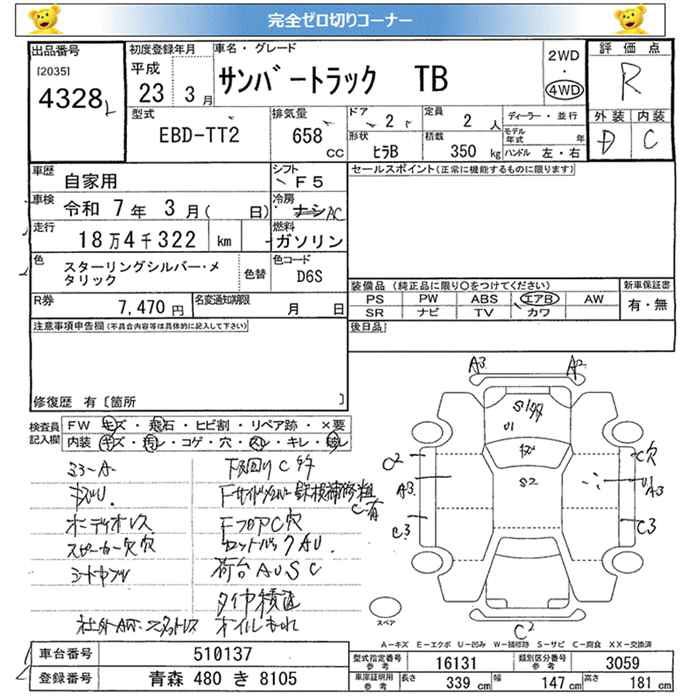 完全ゼロ切りコーナー
出品番号 初度登録年月 車名・グレード 評価点
[2035] 平成 サンバートラック TB 2WD・4WD R
4328 23 3月
型式 排気量 ドア 定員 ディーラー・並行 外装 内装
EBD-TT2 658 CC 2 2人 モデル年式 年 D C
形状 積載
ヒラB 350 kg ハンドル 左・右
車歴 シフト セールスポイント(正常に機能するものに限ります)
自家用 F5
車検 令和 7年 3月( 日) 冷房 ナシ AC
走行 燃料
18万4千322 km ガソリン
色 色替 色コード
スターリングシルバー・メタリック D6S
R券 7,470円 名変通知期限 月 日
装備品 (純正品に限り○をつけてください) 新車保証書
PS PW ABS エアB AW 有・無
SR ナビ TV カワ
注意事項申告欄(不具合内容等は具体的に記入して下さい) 後日品
修復歴 有〔箇所 〕
検査員記入欄 FW キズ・飛石・ヒビ割・リペア跡・×要
内装 キズ・汚レ・コゲ・穴・スレ・キレ・破レ
ミラーA 下回りCサ
キズU
オーディオレス Fフロア C穴
スピーカー欠穴
シートヤブレ 荷台 AUSC
オイルもれ
A3 A2
U1
S2
C2 C欠
A3 A3
C3 C3
C2
スペア
A-キズ E-エクボ U-凹み W-補修跡 S-サビ C-腐食 XX-交換済
車台番号 510137 型式指定番号 参考 16131 類別区分番号 参考 3059
登録番号 青森 480 き 8105 車庫証明用 参考 長さ 339 cm 幅 147 cm 高さ 181 cm